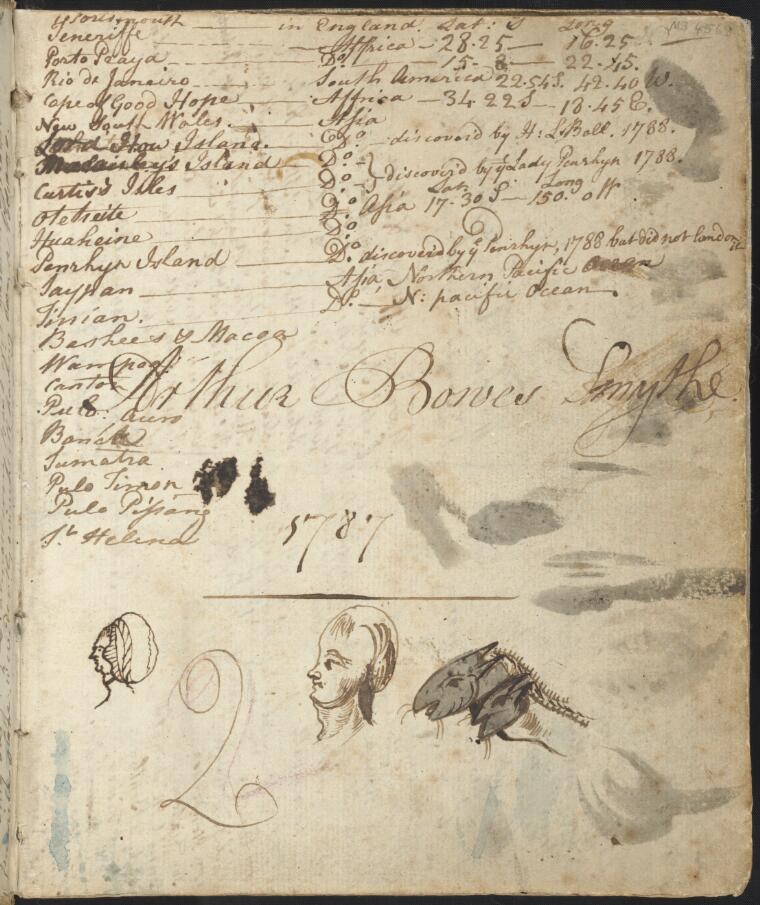 in England. Lat: S Long
Teneriffe Africa - 28.25 - 16.25
Porto Praya Do. - 15 - 8 - 22.45.
Rio de Janeiro South America 22.54 S. 42.40 W.
Cape of Good Hope Affrica - 34 22 S - 18.45 E.
New South Wales. Asia
Lord How Island. Do. - discover'd by H: L: Ball. 1788.
Island Do.
Curtis's Isles Do. } discover'd by ye Lady Penrhyn 1788.
Lat: Long
Oteheite Do. Asia 17-30 S - 150. off
Huaheine Do.
Penrhyn Island Do. discover'd by ye Penrhyn, 1788 but did not land on it
Saypan Asia Northern Pacific Ocean
Tinian. Do. - N: pacific Ocean
Bashees & Macoa
Wampoo
Canton
Arthur Bowes Smythe.
Pulo Auro
Banca
Sumatra
Pulo Timon
Pulo Pissang
St. Helena
1787
2